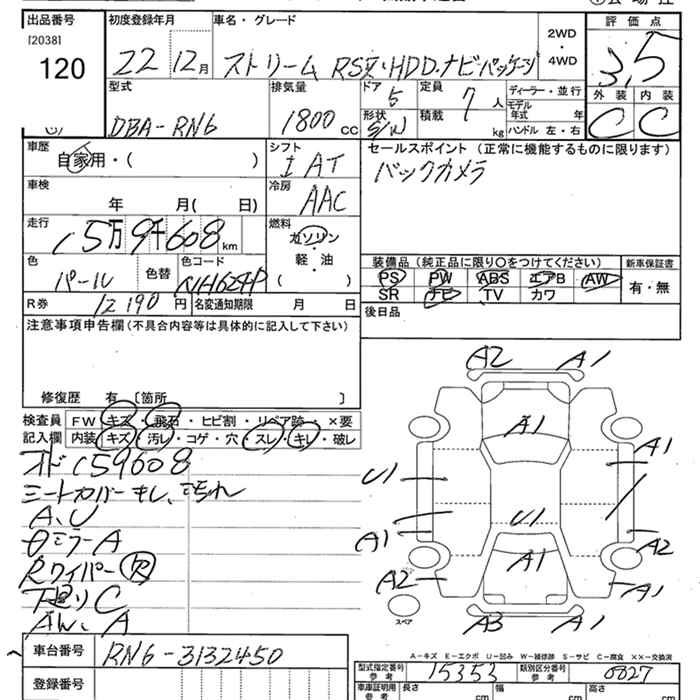 出品番号 初度登録年月 車名・グレード 評価点
[2038]
120
22 12月 ストリーム RSZ・HDD.ナビパッケージ 2WD・4WD 3.5
型式 排気量 ドア 定員 ディーラー・並行 外装 内装
DBA-RN6 1800cc 5 7人 モデル年式 年 C C
形状 S/W 積載 kg ハンドル 左・右
車歴 シフト セールスポイント (正常に機能するものに限ります)
自家用・( ) I AT バックカメラ
車検 冷房
年 月( 日) AAC
走行 燃料
15万9千608km ガソリン
軽・油
( )
色 色替 色コード 装備品(純正品に限り○をつけてください) 新車保証書
パール NH624P PS PW ABS エアB AW 有・無
SR ナビ TV カワ
R券 12190円 名変通知期限 月 日 後日品
注意事項申告欄(不具合内容等は具体的に記入して下さい)
修復歴 有 [箇所 ]
検査員 FW キズ・飛石・ヒビ割・リペア跡・×要
記入欄 内装 キズ・汚レ・コゲ・穴・スレ・キレ・破レ
オド159608
シートカバーキレ、こすれ
A、U
θミラーA
Rワイパー欠
下廻りC
A2 A1
A1
U1 A1
U1
A1 A2
A1
A2 A1
スペア A3 A1
A-キズ E-エクボ U-凹み W-補修跡 S-サビ C-腐食 ××-交換済
車台番号 RN6-3132450
型式指定番号 参考 15353 類別区分番号 参考 0027
登録番号
車庫証明用 参考 長さ cm 幅 cm 高さ cm